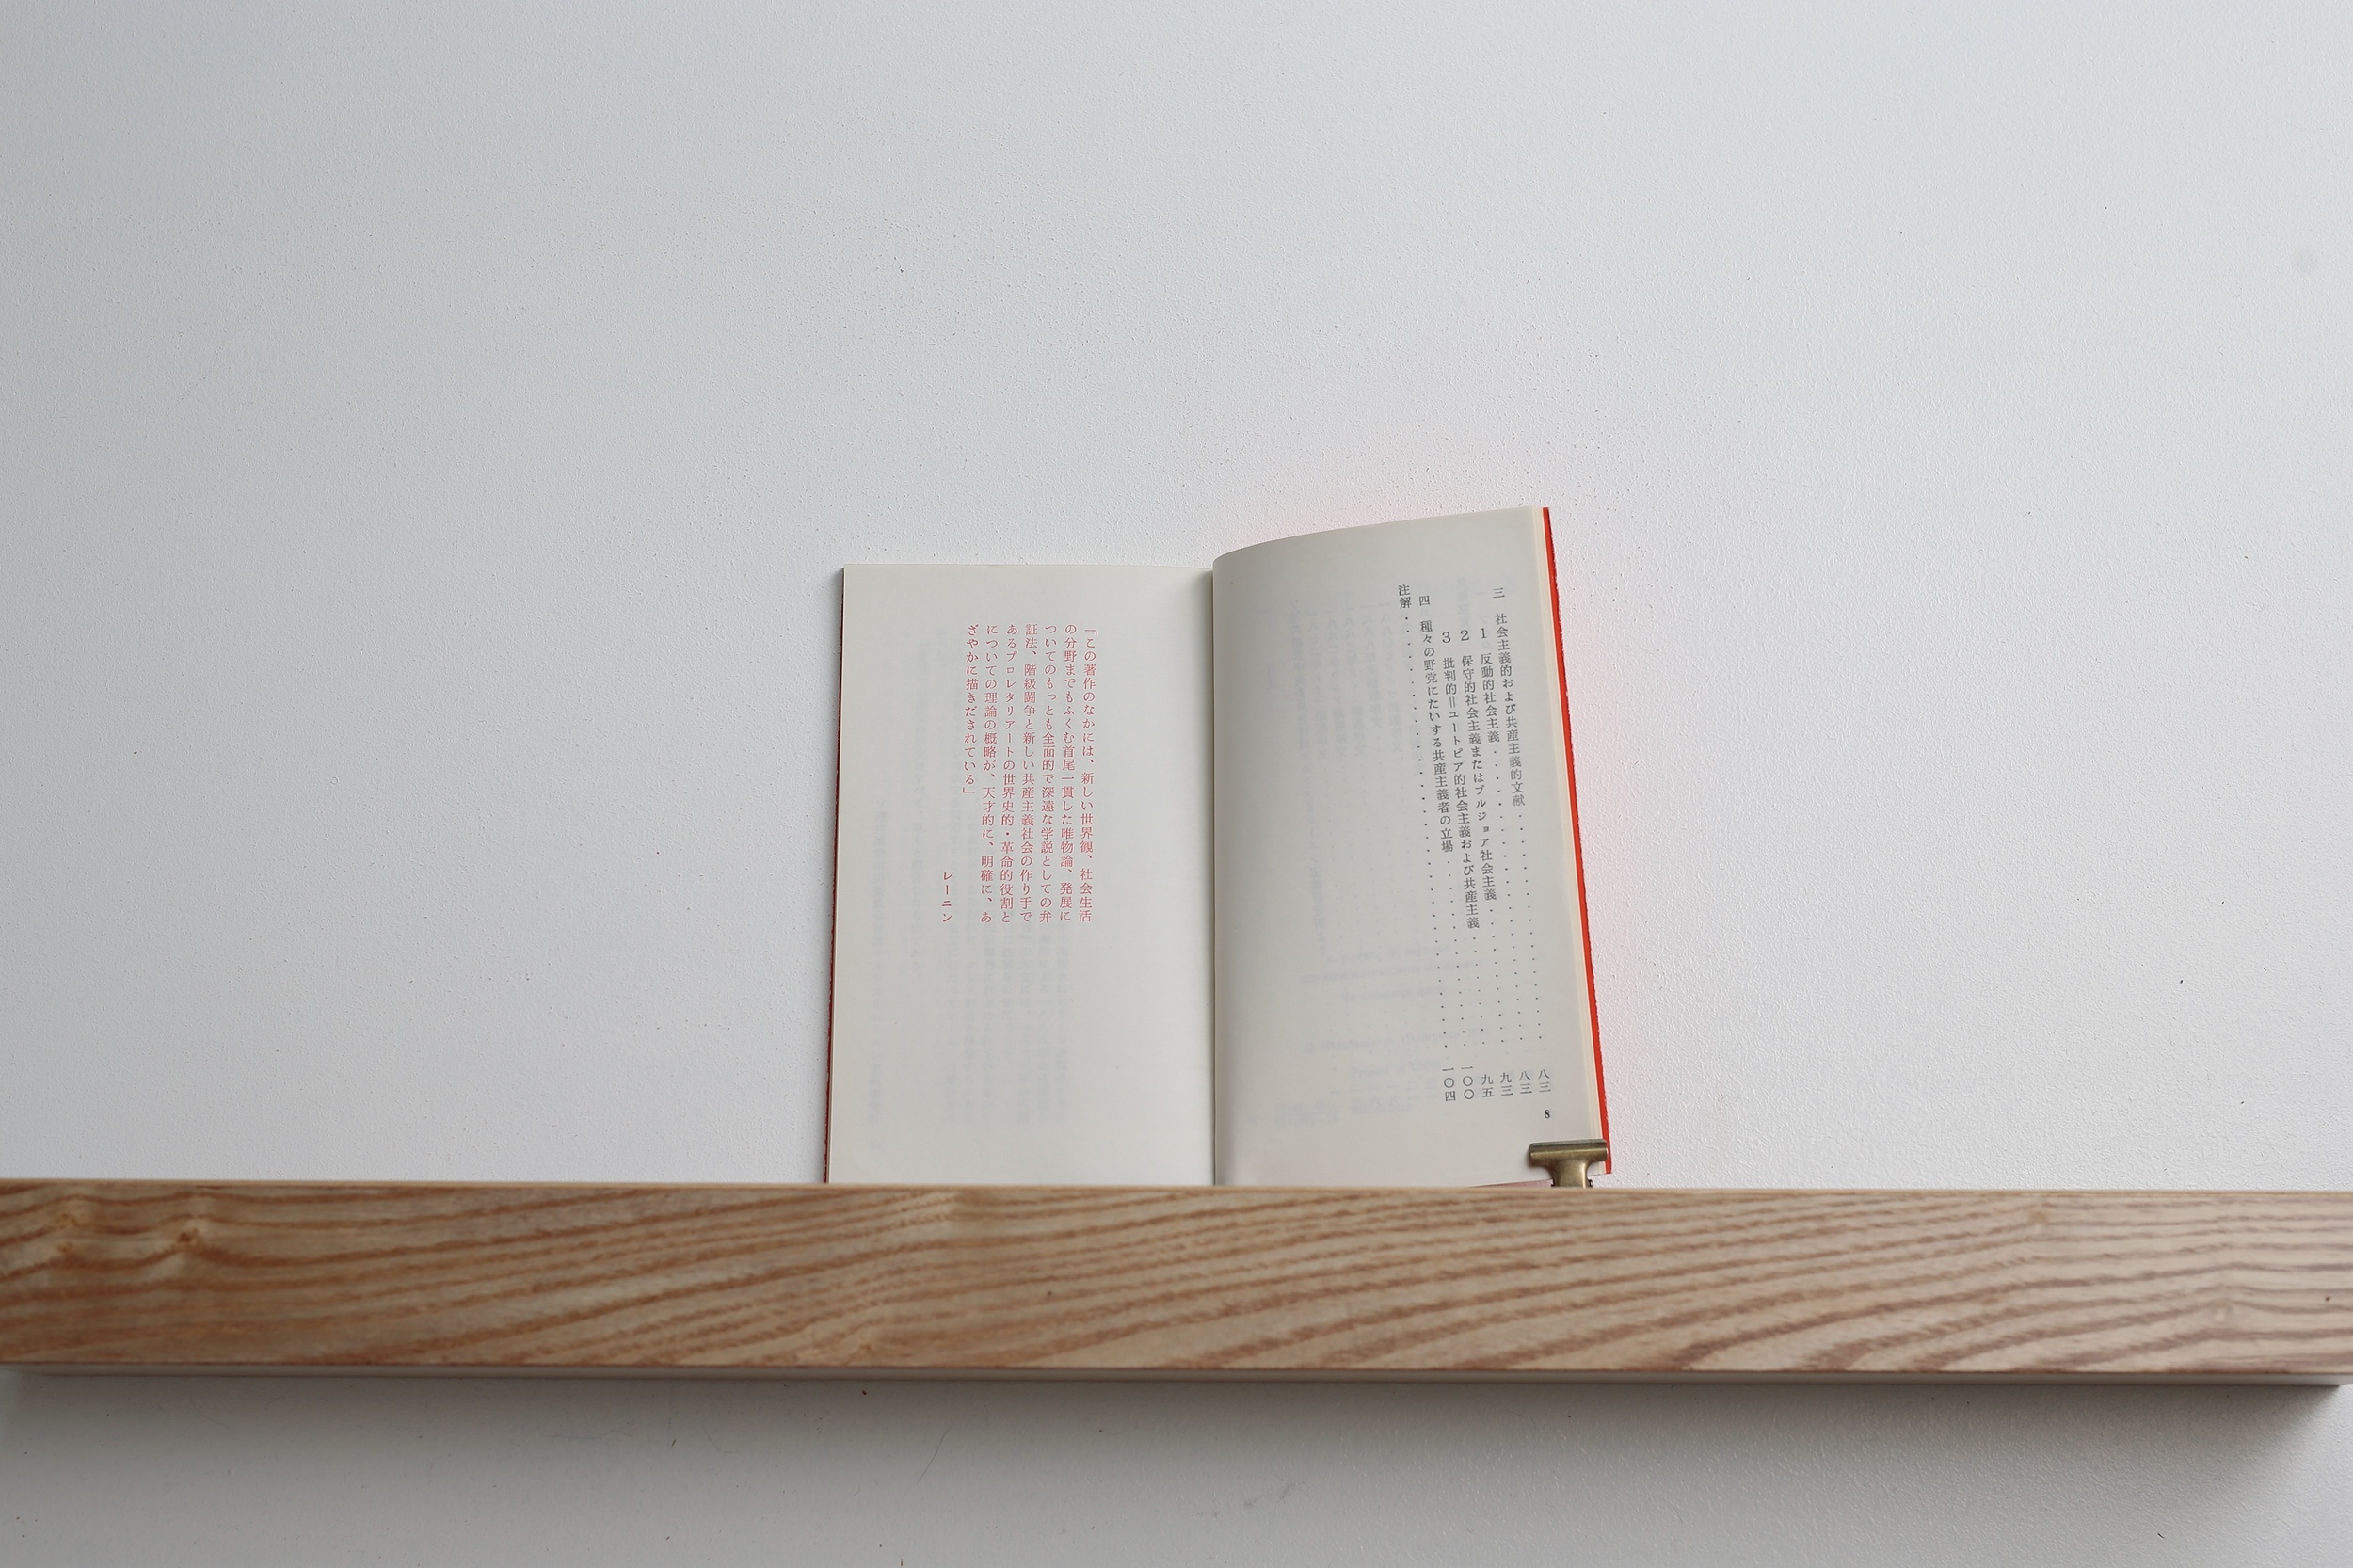 三 社会主義的および共産主義的文献……八三
1 反動的社会主義……八三
2 保守的社会主義またはブルジョア社会主義……九三
3 批判的＝ユートピア的社会主義および共産主義……九五
四 種々の野党にたいする共産主義者の立場……一〇〇
注解……一〇四
8
「この著作のなかには、新しい世界観、社会生活
の分野までもふくむ首尾一貫した唯物論、発展に
ついてのもっとも全面的で深遠な学説としての弁
証法、階級闘争と新しい共産主義社会の作り手で
あるプロレタリアートの世界史的・革命的役割と
についての理論の概略が、天才的に、明確に、あ
ざやかに描きだされている」
レーニン